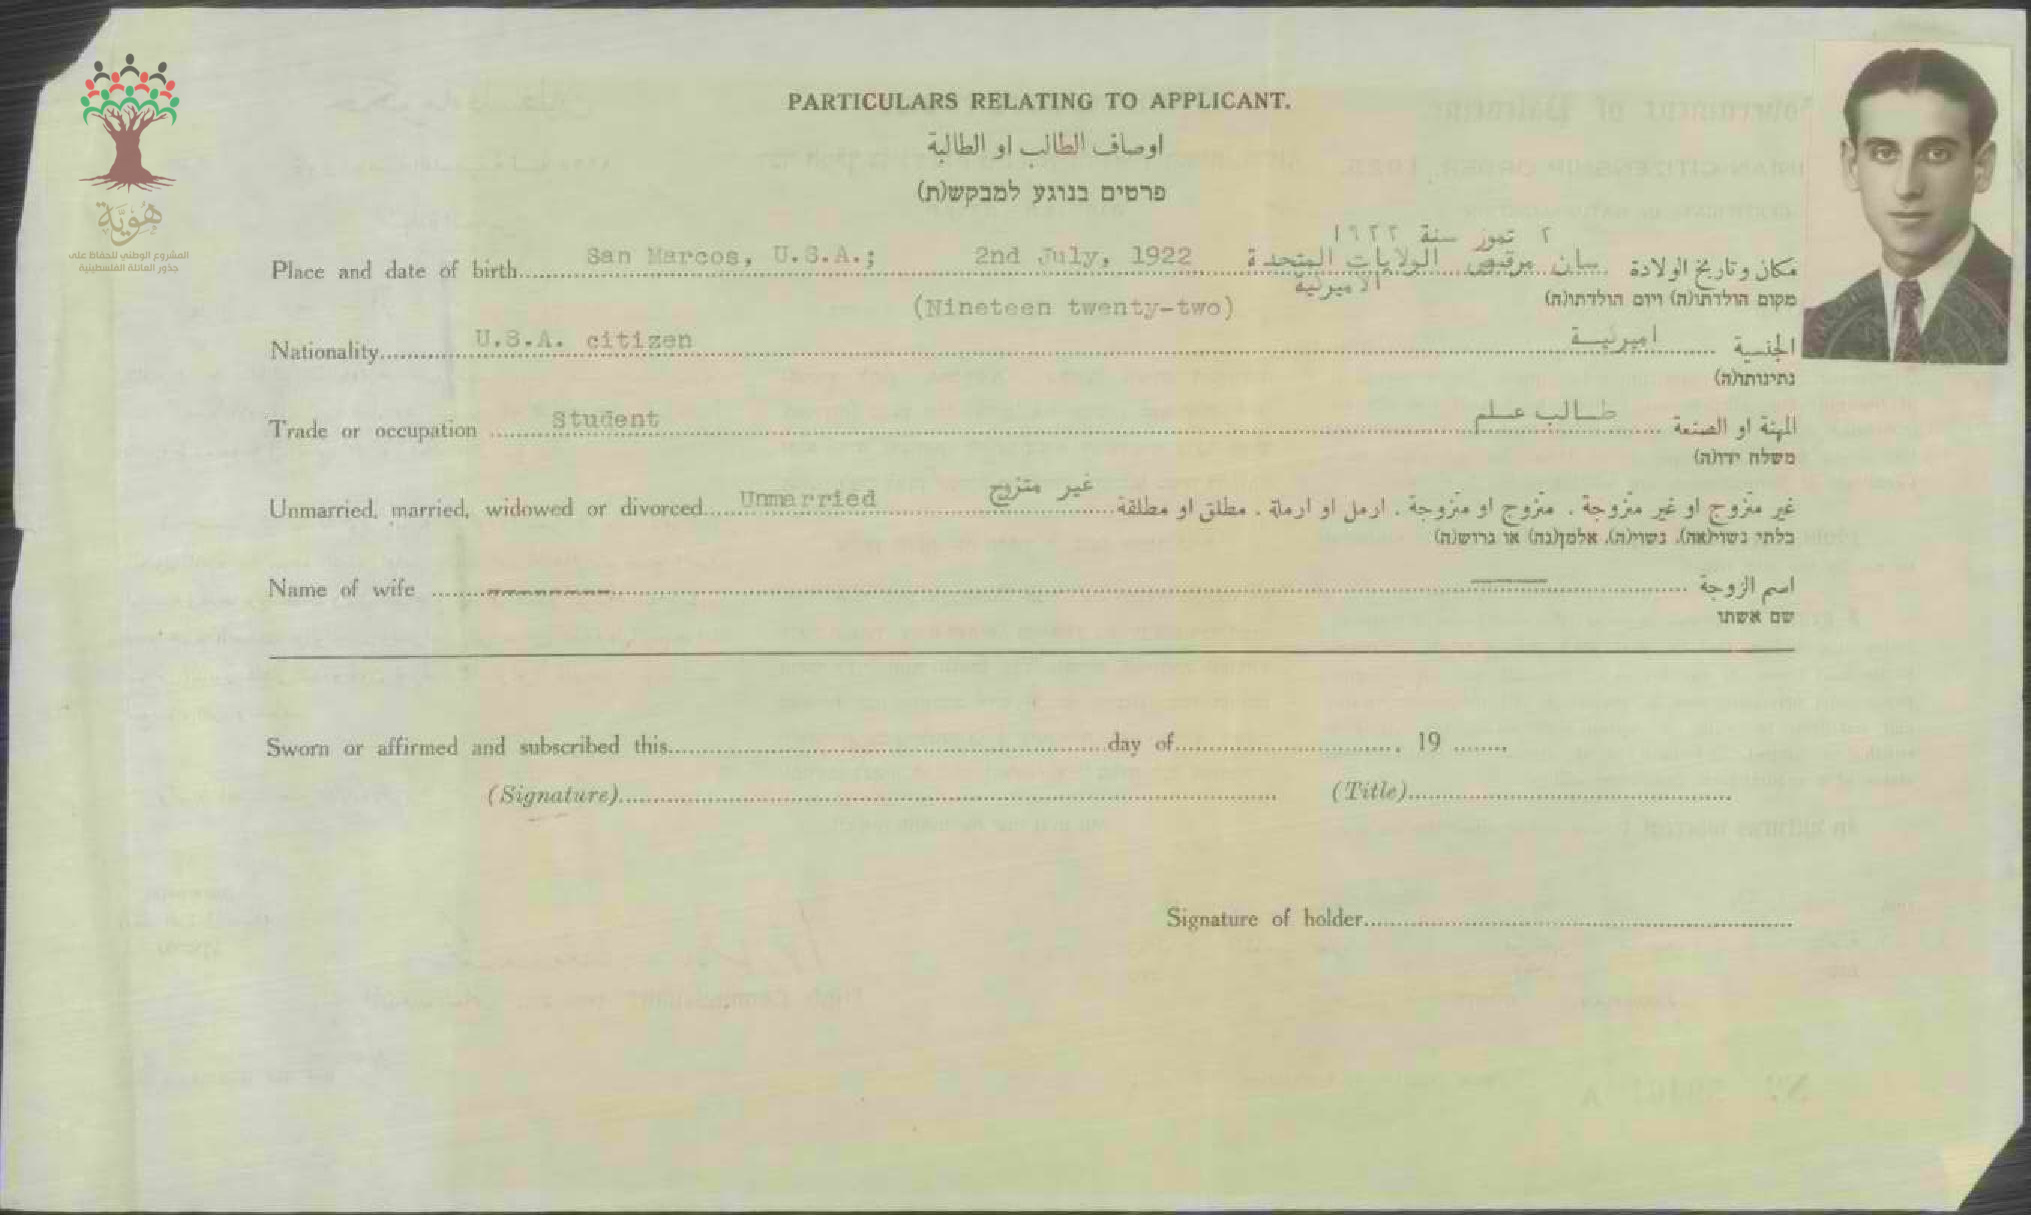 هُوِيَّة
المشروع الوطني للحفاظ على
جذور العائلة الفلسطينية
PARTICULARS RELATING TO APPLICANT.
اوصاف الطالب او الطالبة
פרטים בנוגע למבקש(ת)
٢ تموز سنة ١٩٢٢
Place and date of birth San Marcos, U.S.A.; 2nd July, 1922 سان مرقص الولايات المتحدة مكان وتاريخ الولادة
الاميركية
מקום הולדתו(ה) ויום הולדתו(ה)
(Nineteen twenty-two)
Nationality U.S.A. citizen اميركية الجنسية
נתינותו(ה)
Trade or occupation Student طالب علم المهنة او الصنعة
משלח ידו(ה)
Unmarried, married, widowed or divorced Unmarried غير متزوج غير متزوج او غير متزوجة . متزوج او متزوجة . ارمل او ارملة . مطلق او مطلقة
בלתי נשוי(אה), נשוי(ה), אלמן(נה) או גרוש(ה)
Name of wife اسم الزوجة
שם אשתו
Sworn or affirmed and subscribed this day of , 19
(Signature) (Title)
Signature of holder